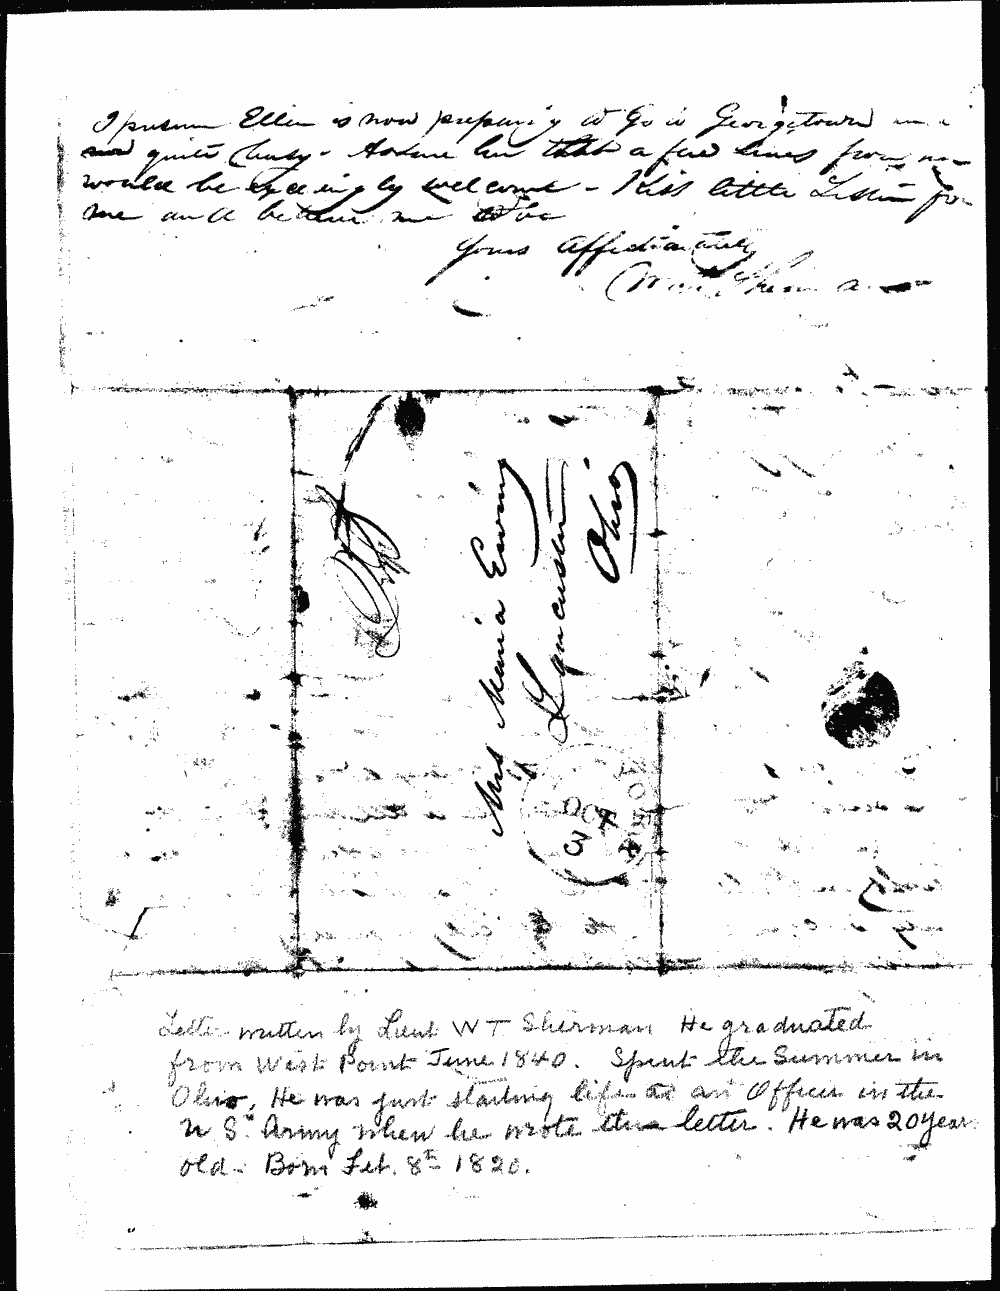 I presume Ellen is now preparing to go to Georgetown and
and quite busy - Assure her that a few lines from me
would be exceedingly welcome - Kiss little Sissie for
me and believe me to be
Yours affectionately
Wm T. Sherman
Mrs Maria Ewing
Lancaster
Ohio
YORK
OCT
3
Letter written by Lieut W T Sherman He graduated
from West Point June 1840. Spent the Summer in
Ohio, He was just starting life as an Officer in the
U S. Army when he wrote this letter. He was 20 year
old - Born Feb. 8th 1820.